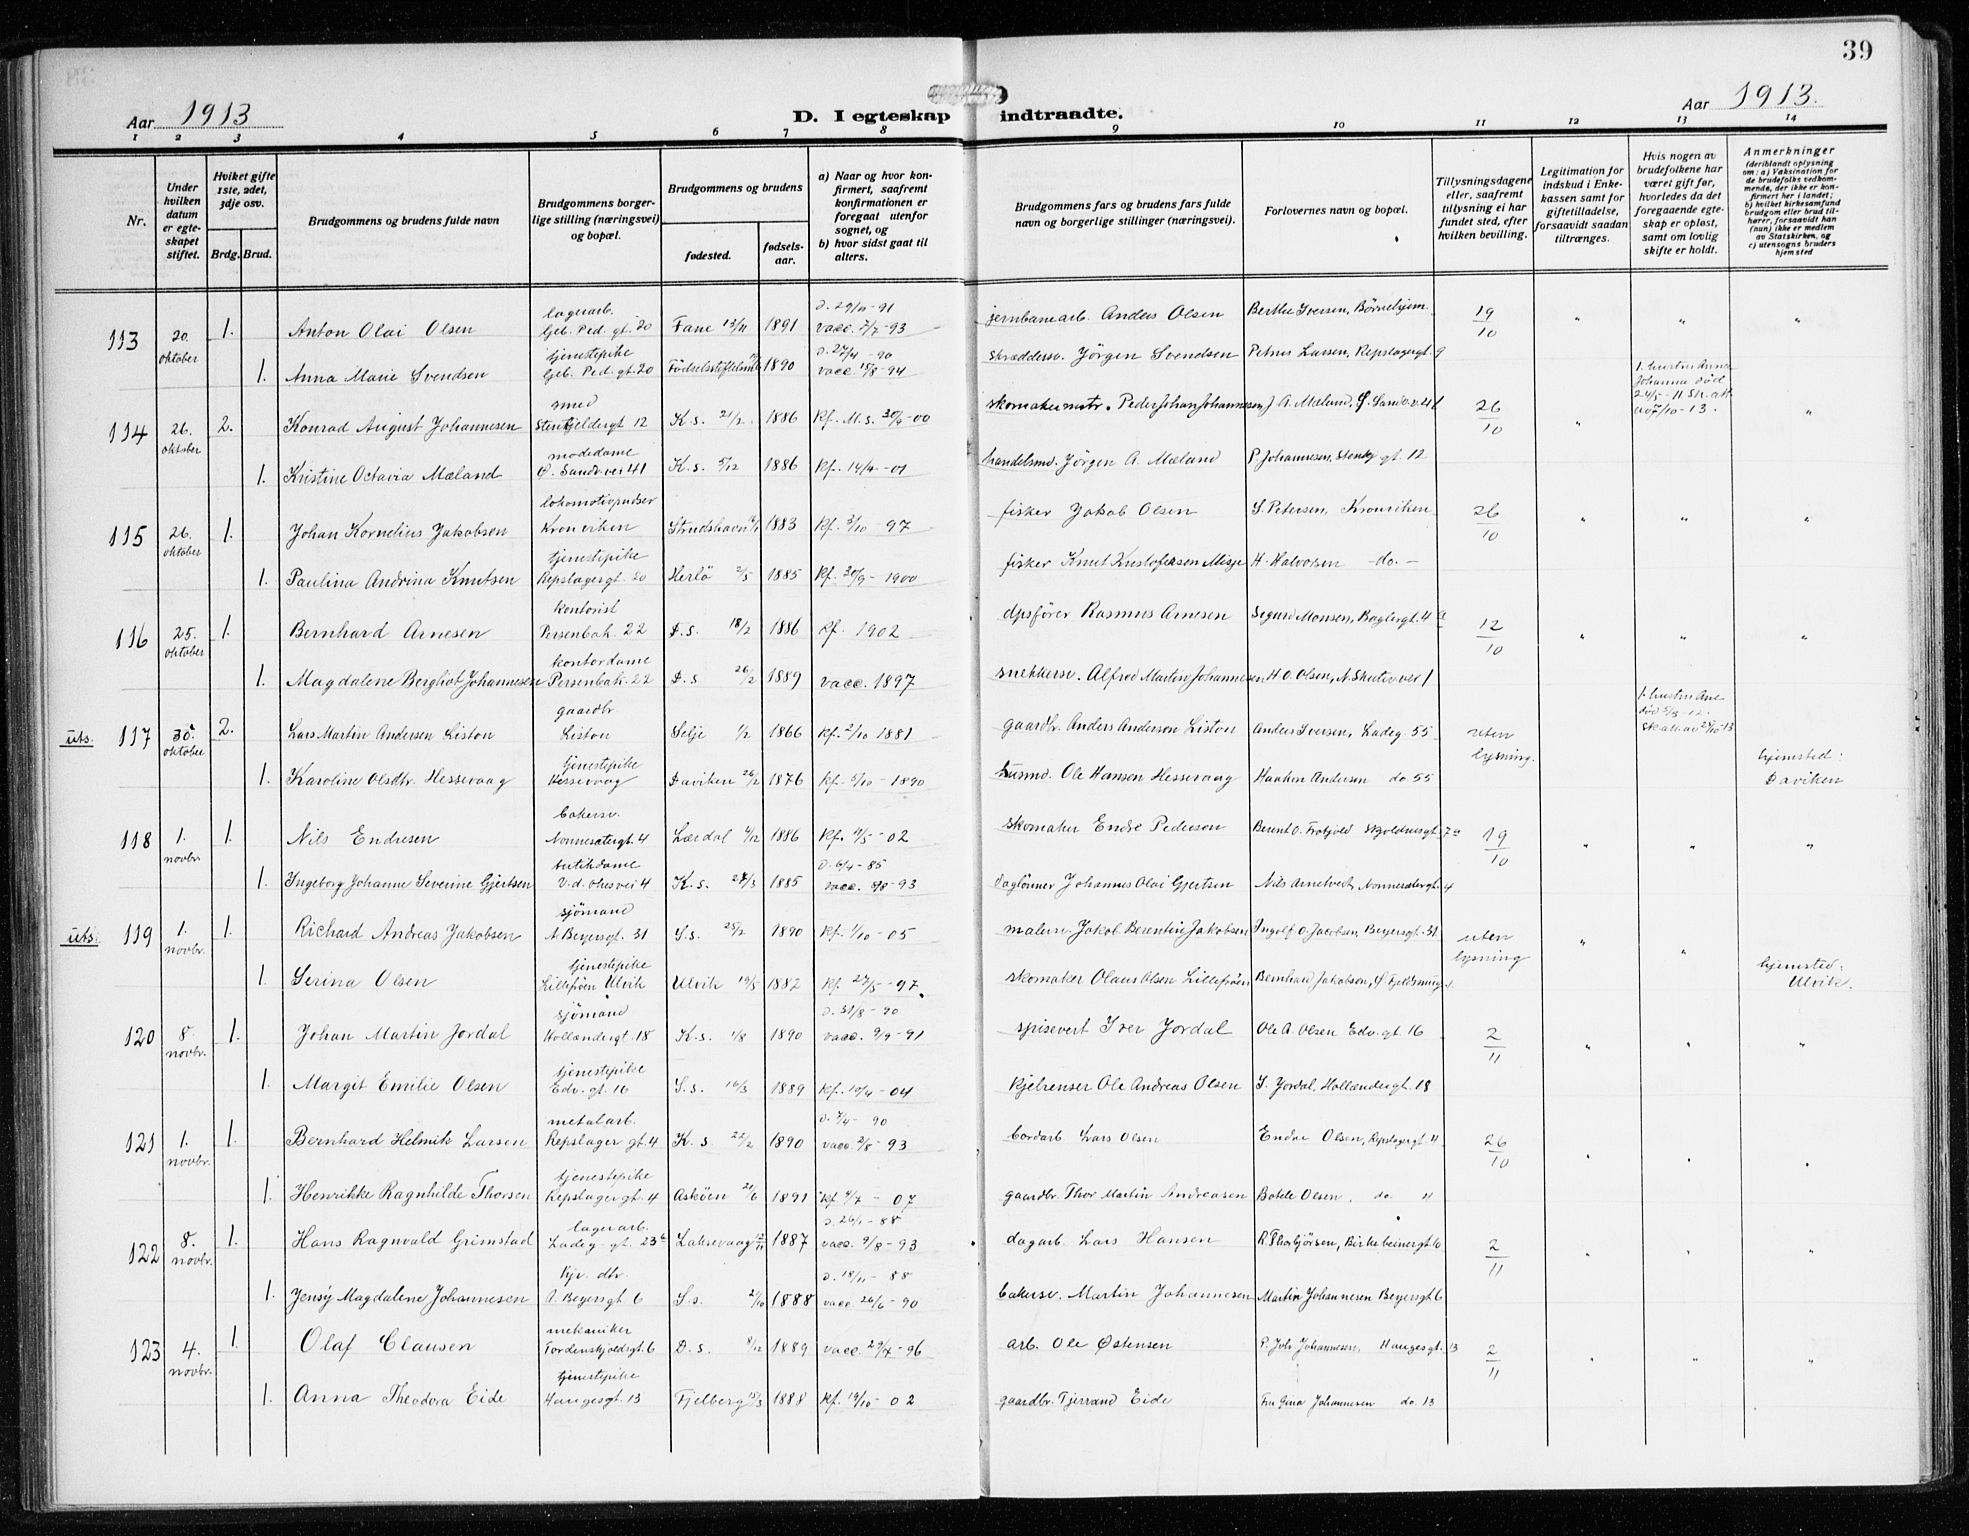 39
Aar 1913
D. I egteskap indtraadte.
Aar 1913.
1 2 3 4 5 6 7 8 9 10 11 12 13 14
Nr.
Under hvilken datum er egteskapet stiftet.
Hviket gifte 1ste, 2det, 3dje osv.
Brdg. Brud.
Brudgommens og brudens fulde navn
Brudgommens borgerlige stilling (næringsvei) og bopæl.
Brudgommens og brudens
fødested.
fødselsaar.
a) Naar og hvor konfirmert, saafremt konfirmationen er foregaat utenfor sognet, og
b) hvor sidst gaat til alters.
Brudgommens fars og brudens fars fulde navn og borgerlige stillinger (næringsvei).
Forlovernes navn og bopæl.
Tillysningsdagene eller, saafremt tillysning ei har fundet sted, efter hvilken bevilling.
Legitimation for indskud i Enkekassen samt for giftetilladelse, forsaavidt saadan tiltrænges.
Hvis nogen av brudefolkene har været gift før, hvorledes da det foregaaende egteskap er opløst, samt om lovlig skifte er holdt.
Anmerkninger
(deriblandt oplysning om: a) Vaksination for de brudefolks vedkommende, der ikke er konfirmert her i landet; b) hvilket kirkesamfund brudgom eller brud tilhører, forsaavidt han (hun) ikke er medlem av Statskirken, og c) utensogns bruders hjemsted
113 20. oktober 1. Anton Olai Olsen lagerarb. Geb. Ped. gt. 20 Fane 13/11 1891 d. 29/11-91 vacc. 2/7-93 jernbanearb. Anders Olsen Berthe Iversen, Børnehjem 19/10 " " "
1. Anna Marie Svendsen tjenestepike Geb. Ped. gt. 20 Fødselsstiftelsen 1890 d. 27/4-90 vacc. 15/8-94 skræddersv. Jörgen Svendsen Petrus Larsen, Repslagergt. 9
114 26. oktober 2. Konrad August Johannesen smed Stenkjeldergt 12 K.s. 21/2 1886 Kf. M.s. 30/9-00 skomakermstr. Peder Johan Johannesen J. A. Mæland, Ø. Sandv.v. 41 26/10 " 1. hustru Anna Johanna død 24/5-11 Sk.att. av 7/10-13. "
1. Kristine Octavia Mæland modedame Ø. Sandv.vei 41 K.s. 5/12 1886 Kf. 14/4-01 handelsmd. Jörgen A. Mæland P. Johannesen, Stenkj. gt. 12
115 26. oktober 1. Johan Kornelius Jakobsen lokomotivpudser Kronviken Strudshavn 1883 Kf. 3/10-97 fisker Jakob Olsen S. Petersen, Kronviken 26/10 " " "
1. Paulina Andrina Knutsen tjenestepike Repslagergt. 20 Herlö 2/5 1885 Kf. 30/9-1900 fisker Knut Kristofersen Misje H. Halvorsen -do.-
116 25. oktober 1. Bernhard Arnesen kontorist Persenbak. 22 D.s. 18/2 1886 Kf. 1902 dpsfører Rasmus Arnesen Sigurd Monsen, Baglergt. 4a 12/10 " " "
1. Magdalene Bergliot Johannesen kontordame Persenbak. 22 D.s. 26/2 1889 vacc. 1897 snekkersv. Alfred Martin Johannesen H.O. Olsen, N. Skutev.vei 1
uts. 117 30. oktober 2. Lars Martin Andersen Liston gaardbr. Liston Selje 1/2 1866 Kf. 2/10 1881 gaardbr. Anders Anderson Liston Anders Iversen, Ladeg. 55 uten lysning. 1. hustru Ane død 5/3-12. Sk.att. av 28/10-13
1. Karoline Olsdtr. Hessevaag tjenestepike Hessevaag Daviken 26/2 1876 Kf. 5/10-1890 husmd. Ole Hansen Hessevaag Haakon Andersen do 55 hjemsted: Daviken
118 1. novbr. 1. Nils Endresen bakersv. Nonnesætergt. 4 Lærdal 4/12 1886 Kf. 4/5-02 skomaker Endre Pedersen Berent O. Frotjold Skjoldnesgt 7a 19/10 " " "
1. Ingeborg Johanne Severine Gjertsen butikdame V.d. Ohesvei 4 K.s. 28/3 1885 d. 6/4-85 vacc. 8/8-93 daglønner Johannes Olai Gjertsen Nils Arnetvedt, Nonnesætergt. 4
uts. 119 1. novbr. 1. Richard Andreas Jakobsen sjömand A. Beyersgt. 31 S.s. 25/2 1890 Kf. 1/10-05 malersv. Jakob Berentin Jakobsen Ingolf O. Jacobsen, Beyersgt. 31 uten lysning " "
1. Serina Olsen tjenestepike Lillefröen Ulvik Ulvik 19/5 1882 Kf. 27/5-97. skomaker Olaus Olsen Lillefröen Bernhard Jakobsen, hjemsted: Ulvik.
120 8. novbr. 1. Johan Martin Jordal sjömand Hollændergt. 18 K.s. 1/8 1890 d. 31/8-90 vacc. 9/9-91 spisevert Iver Jordal Ole A. Olsen Edv. gt. 16 2/11 " " "
1. Margit Emilie Olsen tjenestepike Edv. gt. 16 S.s. 16/3 1889 Kf. 10/4-04 kjelrenser Ole Andreas Olsen I. Jordal, Hollændergt. 18
121 1. novbr. 1. Bernhard Helmik Larsen metalarb. Repslager gt. 4 K.s. 22/2 1890 d. 7/4-90 vacc. 2/8-93 bordarb. Lars Olsen Endre Olsen, Repslagergt. 4 26/10 " " "
1. Henrikke Ragnhilde Thorsen tjenestepike Repslagergt. 4 Askøen 21/6 1891 Kf. 4/7-07 gaardbr. Thor Martin Andreasen Botele Olsen, do "
122 8. novbr. 1. Hans Ragnvald Grimstad lagerarb. Ladeg. gt. 23a Laksevaag 2/11 1887 d. 26/1-88 vacc. 9/8-93 dagarb. Lars Hansen R. Thorbjörsen, Birkebeinergt. 6 2/11 " " "
1. Jensy Magdalene Johannesen Kjv. dtr. A. Beyersgt 6 S.s. 2/10 1888 d. 18/11-88 vacc. 26/6-90 bakersv. Martin Johannesen Martin Johannesen Beyersgt 6
123 4. novbr. 1. Olaf Clausen mekaniker Tordenskjoldsgt. 6 D.s. 8/12 1889 vacc. 29/4-96 arb. Ole Østensen P. Joh Johannesen, Haugesgt. 13 2/11 " " "
1. Anna Theodora Eide tjenestepike Haugesgt. 13 Fjelberg 15/3 1888 Kf. 19/10-02 gaardbr. Tjerrand Eide Fru Gina Johannesen do. 13